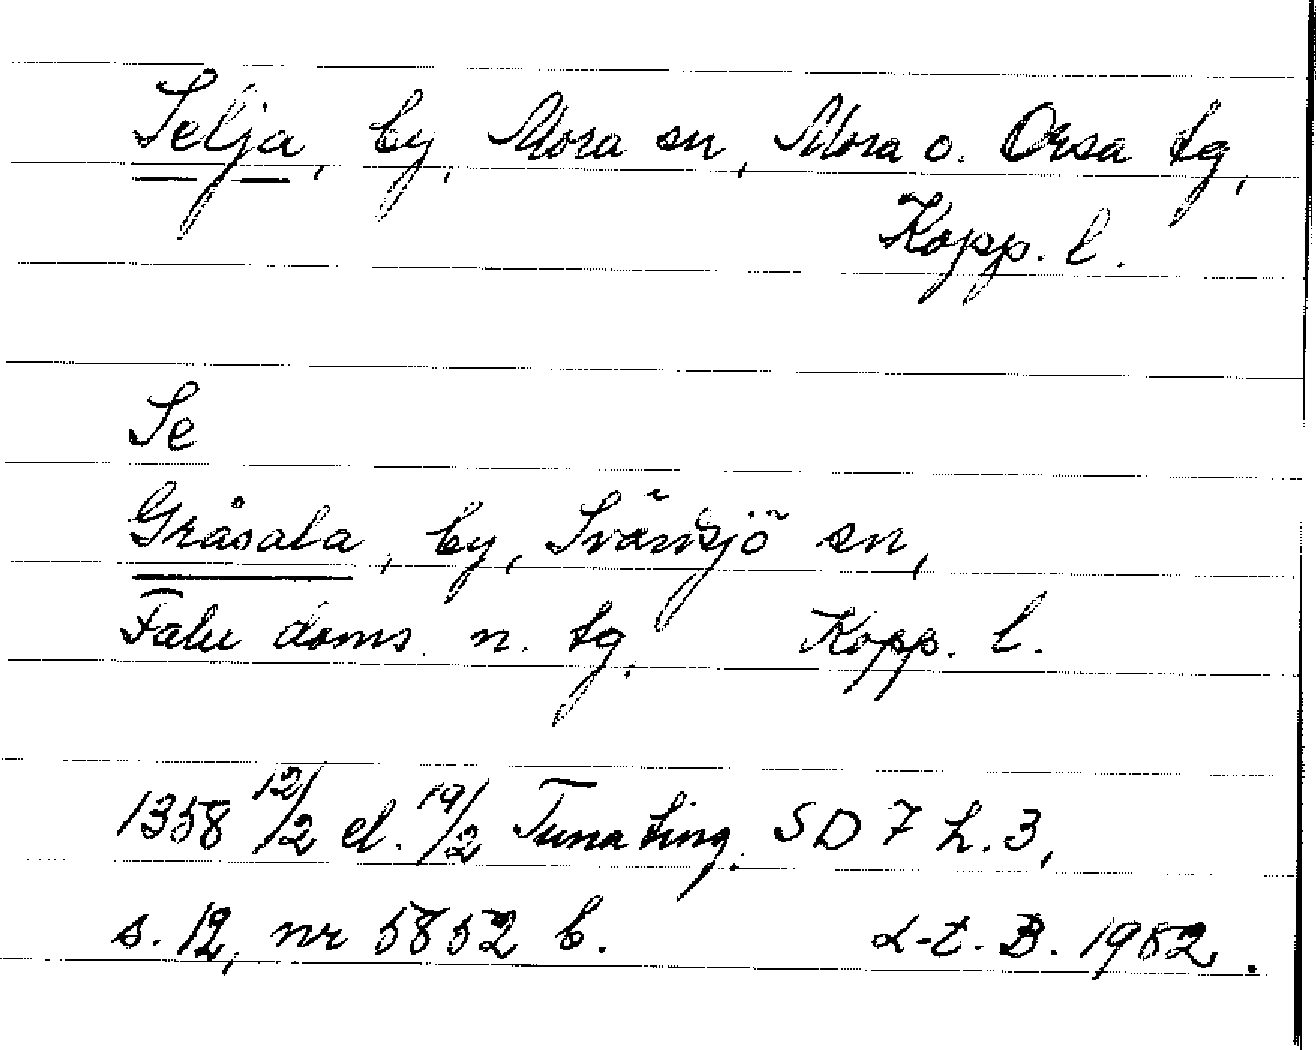 Selja, by, Mora sn, Mora o. Orsa tg,
Kopp. l.
Se
Gråsala, by, Svärdsjö sn,
Falu doms. n. tg. Kopp. l.
1358 12/2 el. 19/2 Tuna ting. SD 7 h. 3,
s. 12, nr 5852 b. L-E. B. 1982.